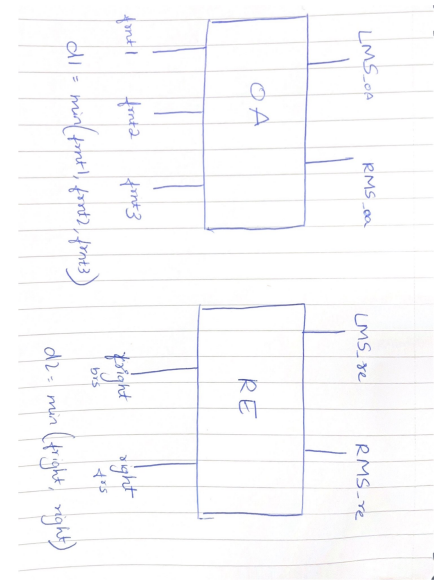 LMS_oa RMS_oa
OA
frnt1 frnt2 frnt3
d1 = min(frnt1, frnt2, frnt3)
LMS_re RMS_re
RE
fright right
d2 = min(fright, right)